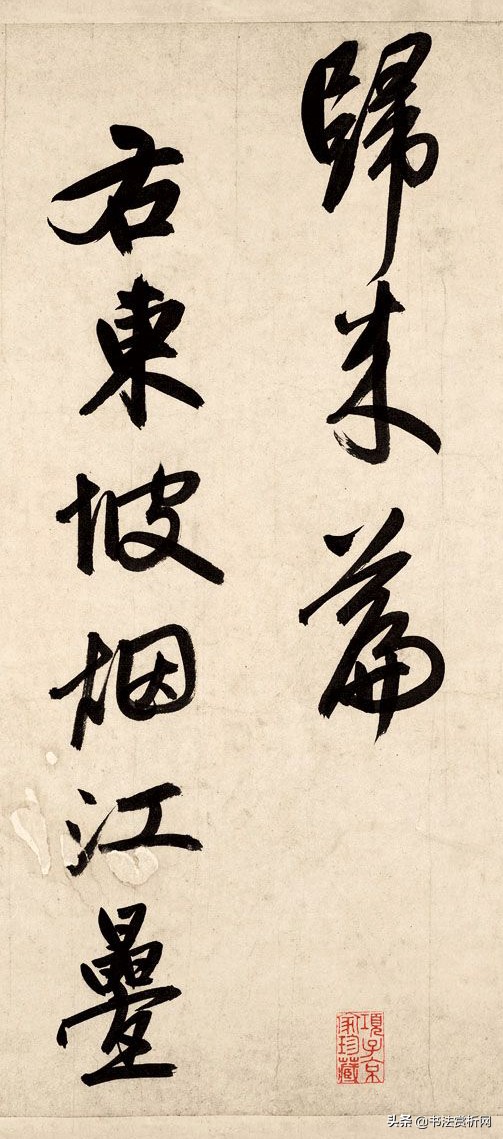 歸来篇
右東坡烟江疊
項子京
家珍藏
头条 @书法赏析网